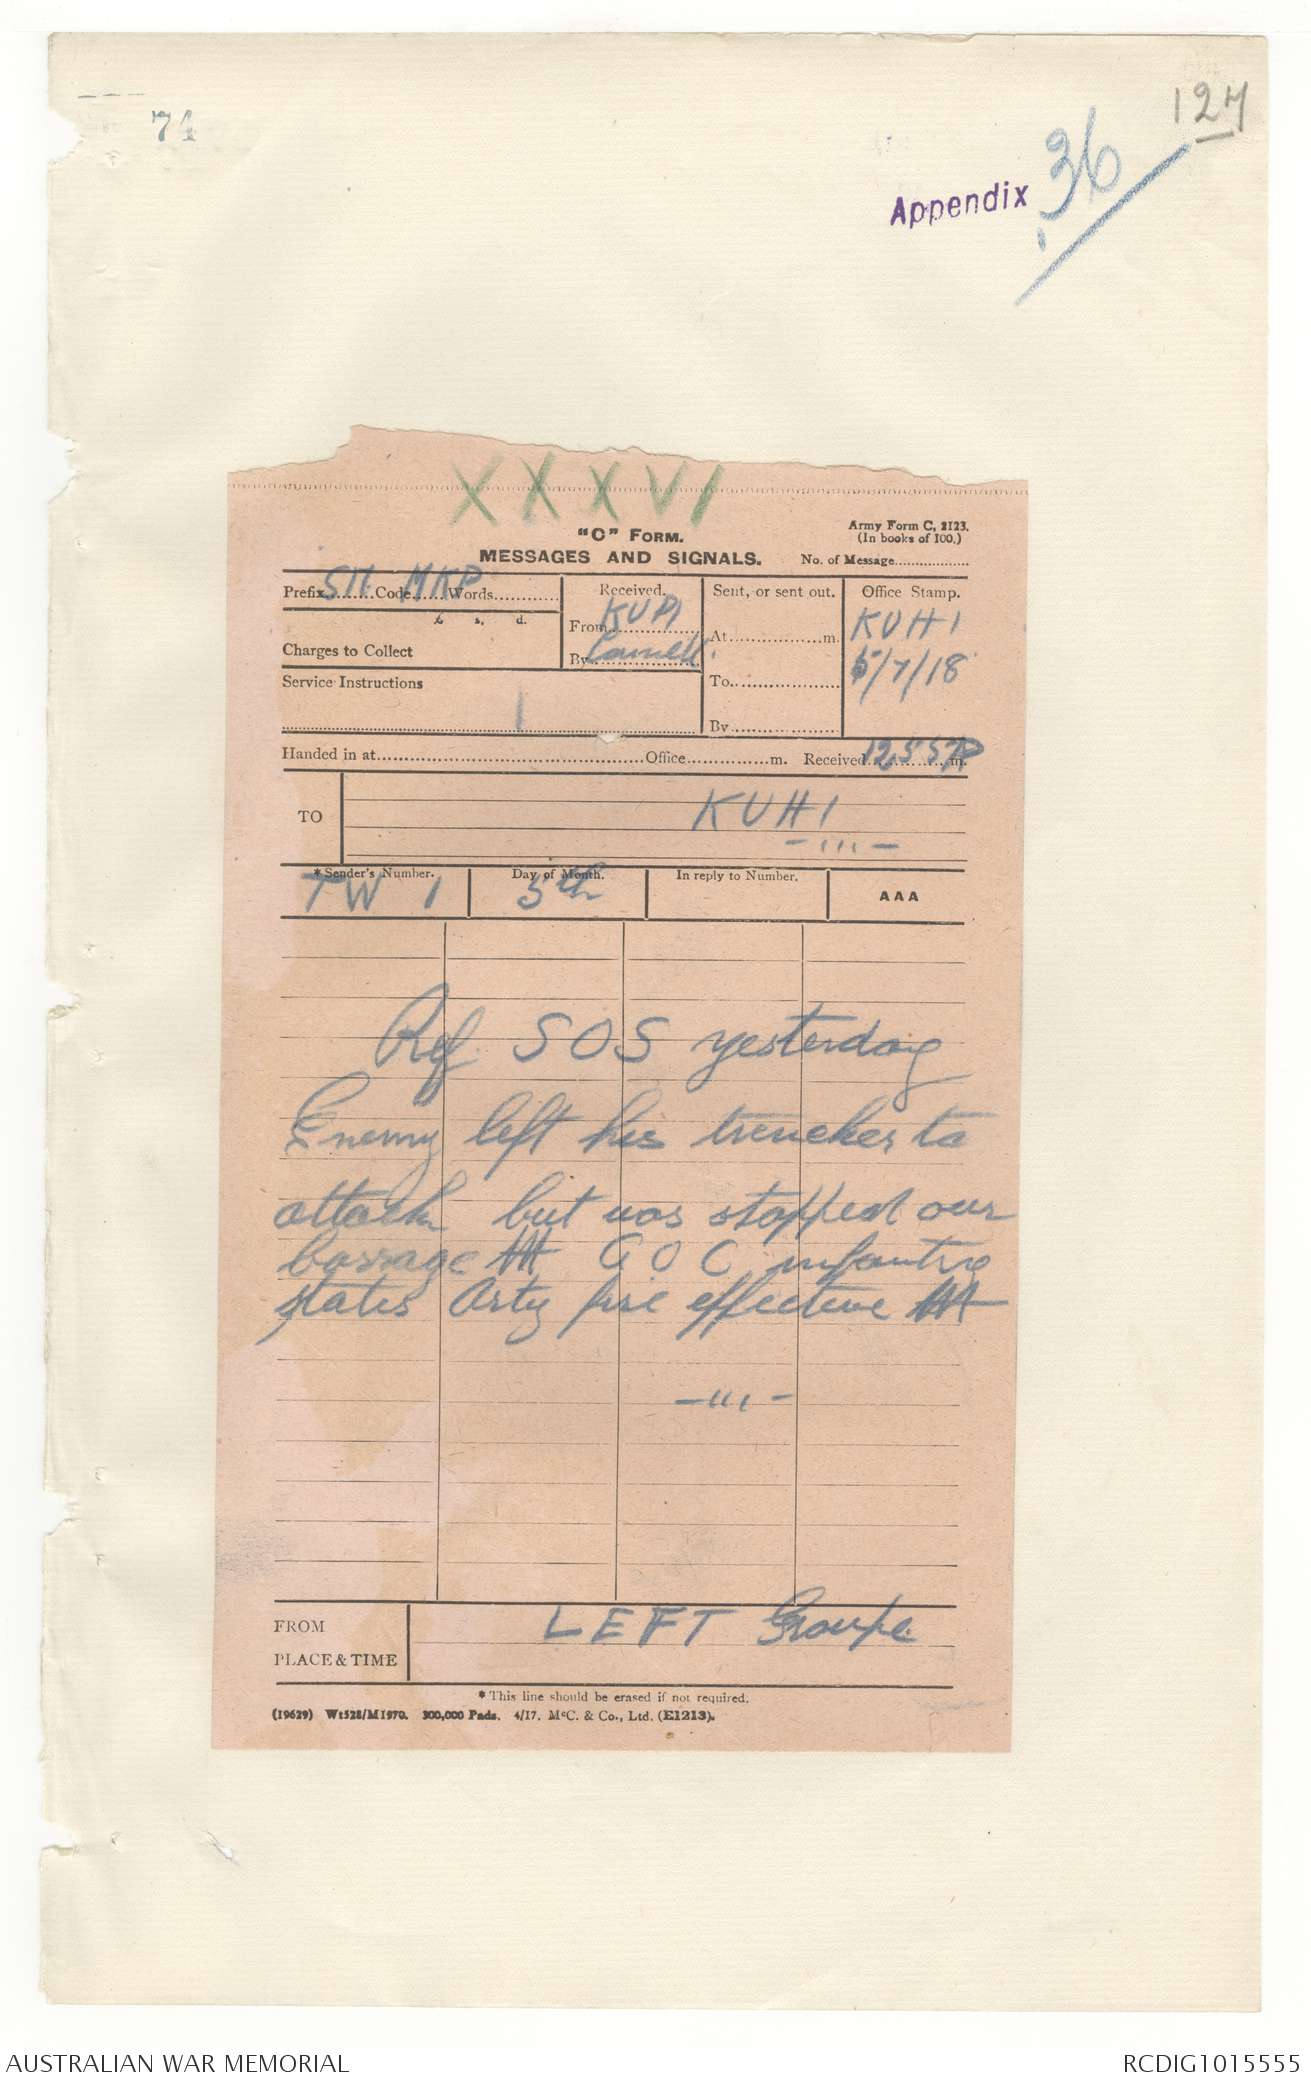 74
127
Appendix 36
XXXVI
"C" FORM.
MESSAGES AND SIGNALS.
Army Form C, 2123.
(In books of 100.)
No. of Message
Prefix SM Code MKP Words
Received.
Sent, or sent out.
Office Stamp.
£ s. d.
From KUPI
At m.
KUHI
Charges to Collect
By
5/7/18
Service Instructions
To
1
By
Handed in at Office m. Received 12.55 P m.
TO
KUHI
-,,,-
*Sender's Number.
Day of Month.
In reply to Number.
AAA
TW 1
5th
Ref. SOS yesterday
Enemy left his trenches to
attack but was stopped our
barrage AAA G O C infantry
states Arty fire effective AAA
-,,,-
FROM
PLACE & TIME
LEFT Groupe
*This line should be erased if not required.
(19629) Wt528/M1970. 300,000 Pads. 4/17. McC. & Co., Ltd. (E1213).
AUSTRALIAN WAR MEMORIAL
RCDIG1015555